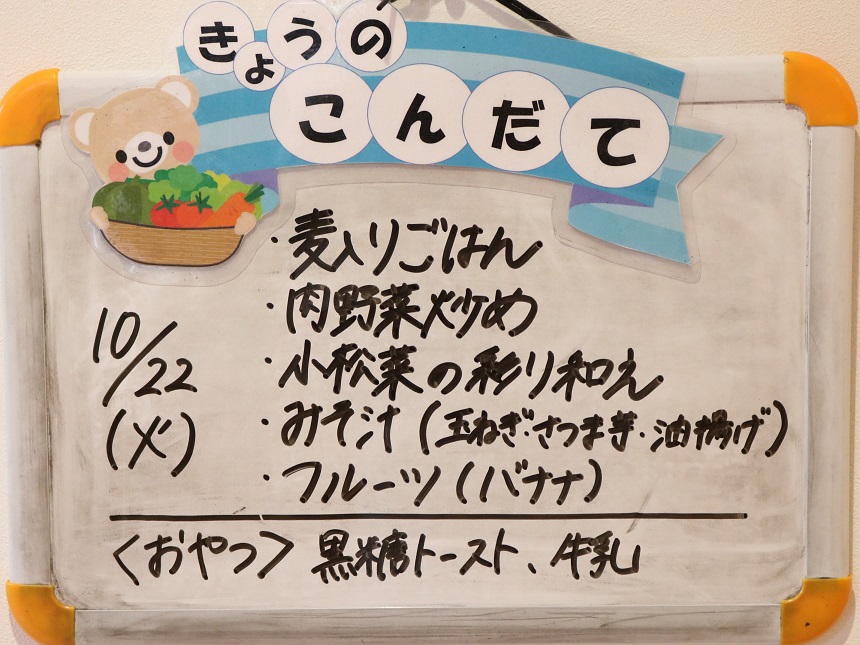 きょうの
こんだて
10/22
(火)
・麦入りごはん
・肉野菜炒め
・小松菜の彩り和え
・みそ汁(玉ねぎ・さつま芋・油揚げ)
・フルーツ(バナナ)
<おやつ> 黒糖トースト、牛乳